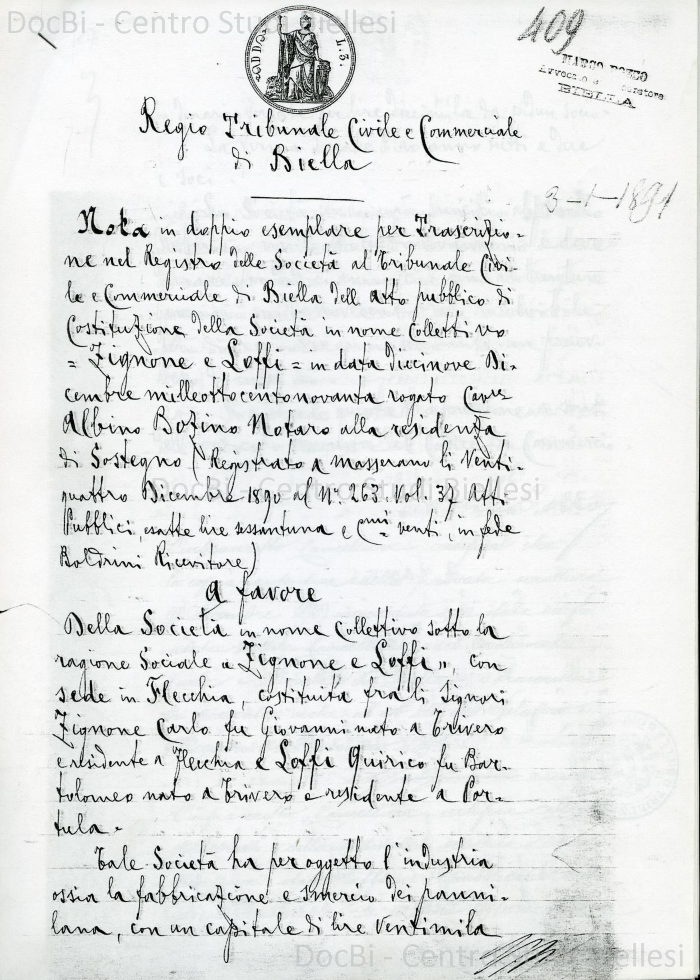 DocBi - Centro Studi Biellesi
409
ADD. L. 3.
MARCO POZZO
Avvocato e Curatore
BIELLA
Regio Tribunale Civile e Commerciale
di Biella
3-1-1891
Nota in doppio esemplare per Trascrizio-
ne nel Registro delle Società al Tribunale Civi-
le e Commerciale di Biella dell'atto pubblico di
Costituzione della Società in nome Collettivo
= Zignone e Loffi = in data diecinove Di-
cembre milleottocentonovanta rogato Cavre
Albino Bozino Notaro alla residenza
di Sostegno (Registrato a Masserano li Venti-
quattro Dicembre 1890 al N° 263. Vol. 37 Atti
Pubblici, esatte lire sessantuna e Cmi venti, in fede
Boldrini Ricevitore)
DocBi - Centro Studi Biellesi
a favore
Della Società in nome Collettivo sotto la
ragione Sociale " Zignone e Loffi ", con
sede in Flecchia, costituita fra li Signori
Zignone Carlo fu Giovanni nato a Trivero
e residente a Flecchia e Loffi Quirico fu Bar-
tolomeo nato a Trivero e residente a Por-
tula.
Tale Società ha per oggetto l'industria
ossia la fabbricazione e smercio dei panni-
lana, con un capitale di lire Ventimila
DocBi - Centro Studi Biellesi